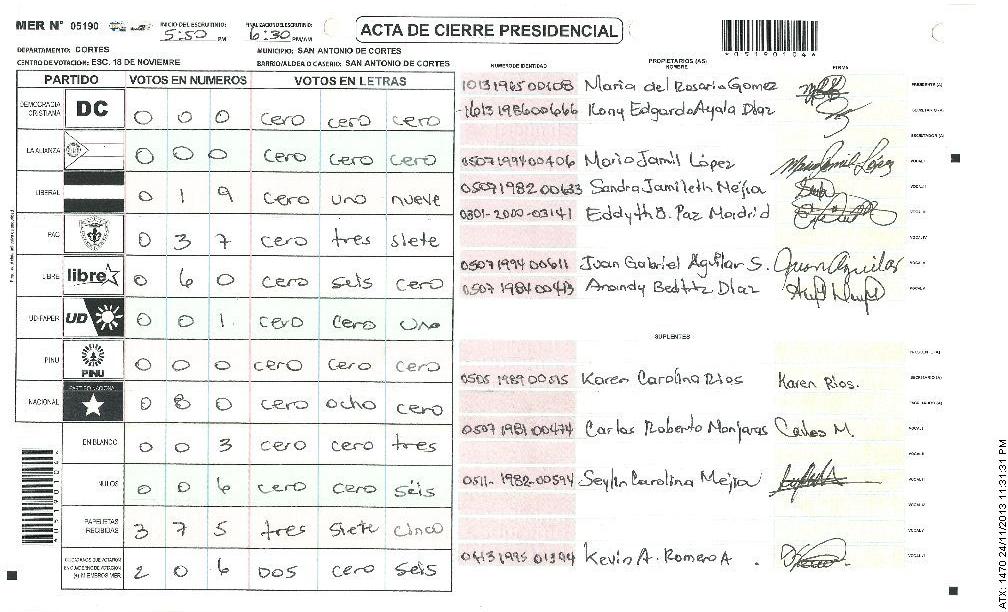 MER Nº 05190
INICIO DEL ESCRUTINIO: 5:50 PM
FINALIZACION DEL ESCRUTINIO: 6:30 PM/AM
ACTA DE CIERRE PRESIDENCIAL
*05190104*
DEPARTAMENTO: CORTES
MUNICIPIO: SAN ANTONIO DE CORTES
CENTRO DE VOTACION: ESC. 18 DE NOVIEMBRE
BARRIO/ALDEA O CASERIO: SAN ANTONIO DE CORTES
PARTIDO VOTOS EN NUMEROS VOTOS EN LETRAS
DEMOCRACIA CRISTIANA DC 0 0 0 cero cero cero
LA ALIANZA 0 0 0 cero cero cero
LIBERAL 0 1 9 cero uno nueve
PAC 0 3 7 cero tres siete
LIBRE libre 0 6 0 cero seis cero
UD-FAPER UD 0 0 1 cero cero uno
PINU PINU 0 0 0 cero cero cero
NACIONAL PARTIDO NACIONAL 0 8 0 cero ocho cero
EN BLANCO 0 0 3 cero cero tres
NULOS 0 0 6 cero cero séis
PAPELETAS RECIBIDAS 3 7 5 tres siete cinco
2 0 6 Dos cero seis
NUMERO DE IDENTIDAD PROPIETARIOS (AS) NOMBRE FIRMA
1013196500608 Maria del Rosario Gomez PRESIDENTE (A)
1613198600666 Kony Edgardo Ayala Diaz SECRETARIO (A)
ESCRUTADOR (A)
0507199400406 Mario Jamil López Mario Jamil López VOCAL I
0507198200633 Sandra Jamileth Mejia VOCAL II
0801-2000-03141 Eddyth O. Paz Madrid VOCAL III
VOCAL IV
0507199400611 Juan Gabriel Aguilar S. Juan Aguilar VOCAL V
0507198400413 Diaz
SUPLENTES
PRESIDENTE (A)
0505198900515 Karen Carolina Rios Karen Rios. SECRETARIO (A)
ESCRUTADOR (A)
0507198100474 Carlos Roberto Monjaras Carlos M. VOCAL I
VOCAL II
0511-1982-00594 Seylin Carolina Mejia VOCAL III
VOCAL IV
VOCAL V
0413199501394 Kevin A. Romero A.
ATX: 1470 24/11/2013 11:31:31 PM